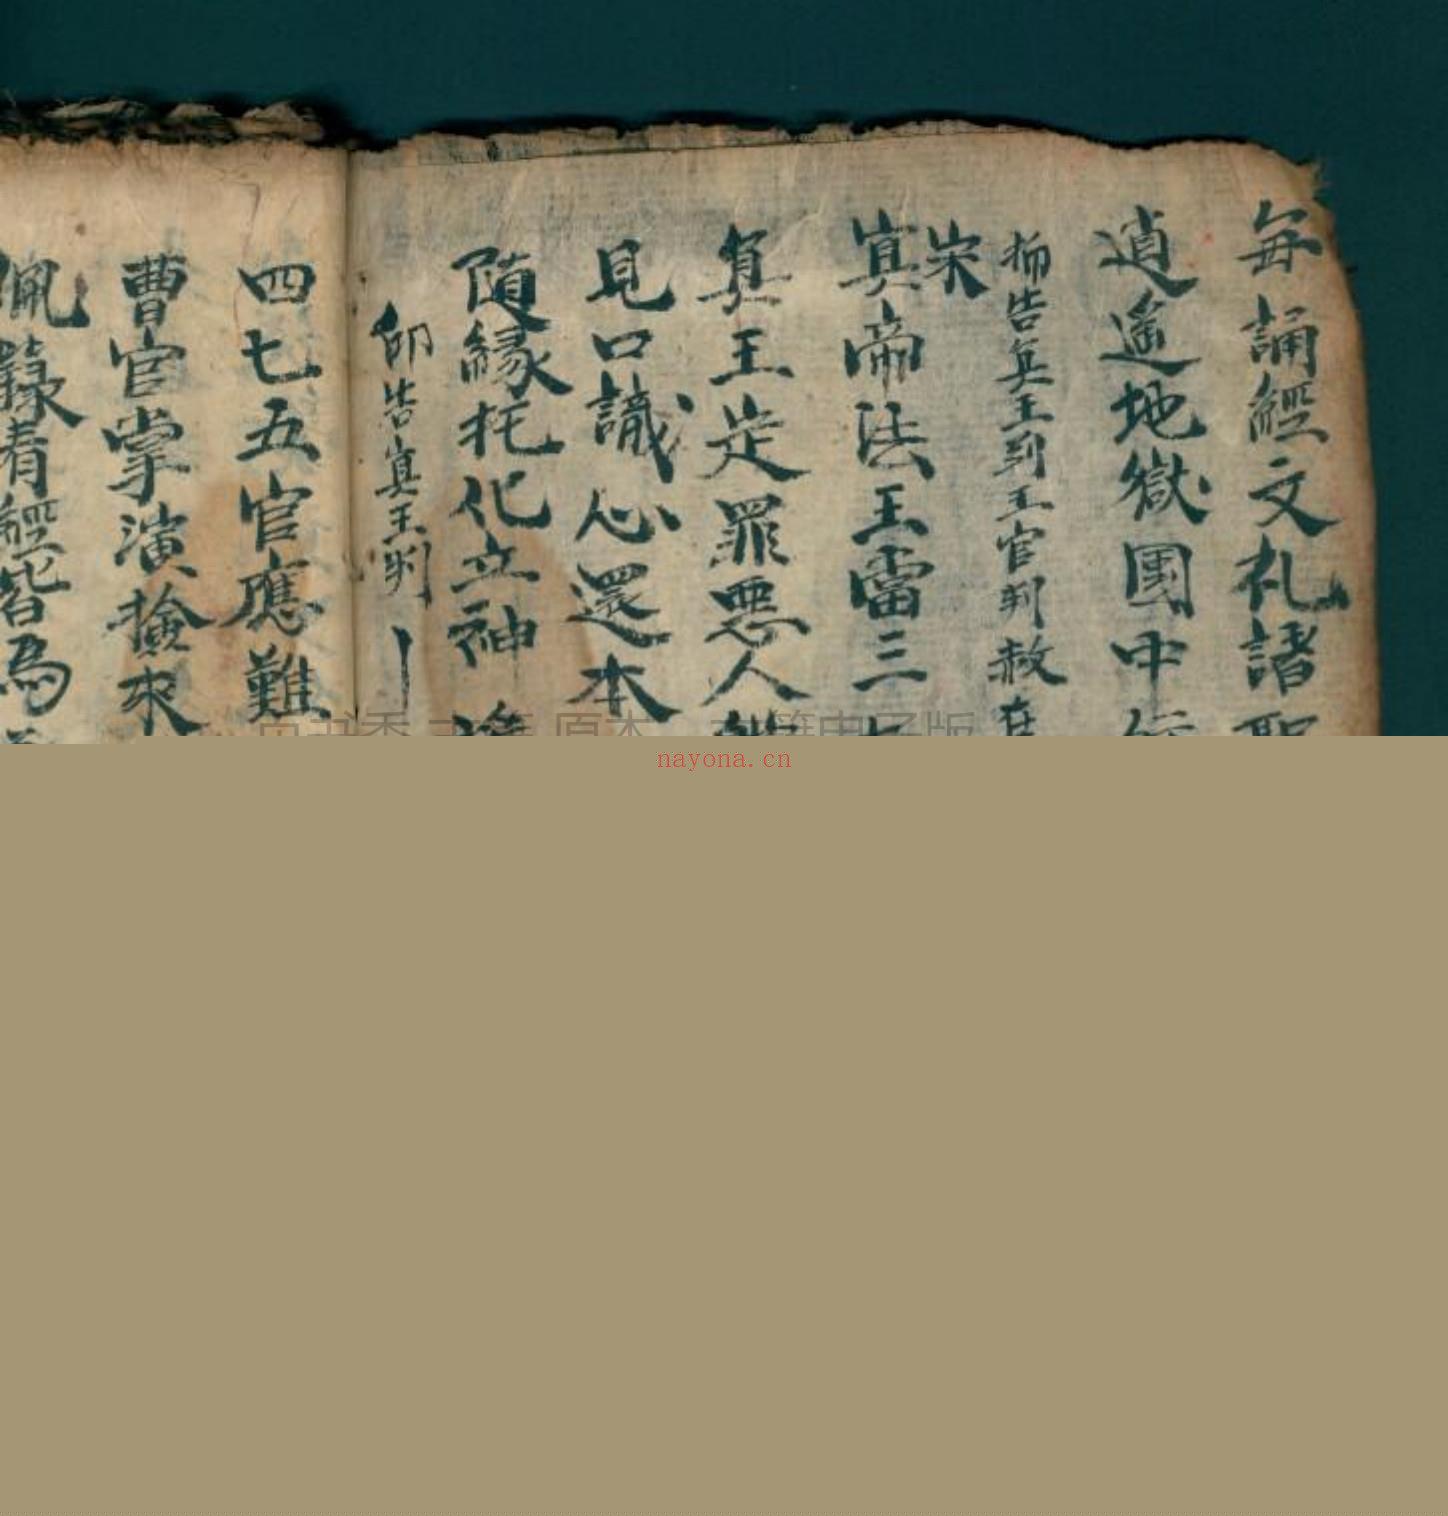 每誦經文礼諸聖
逍遙地獄國中
告真王到王官判赦在
宋
寘帝法王雷三七
真王定罪惡人
見口識心還本
随縁托化立神
仰告寘王判
四七五官應難
曹官掌演撿來
佩籙看經皆為
nayona.cn